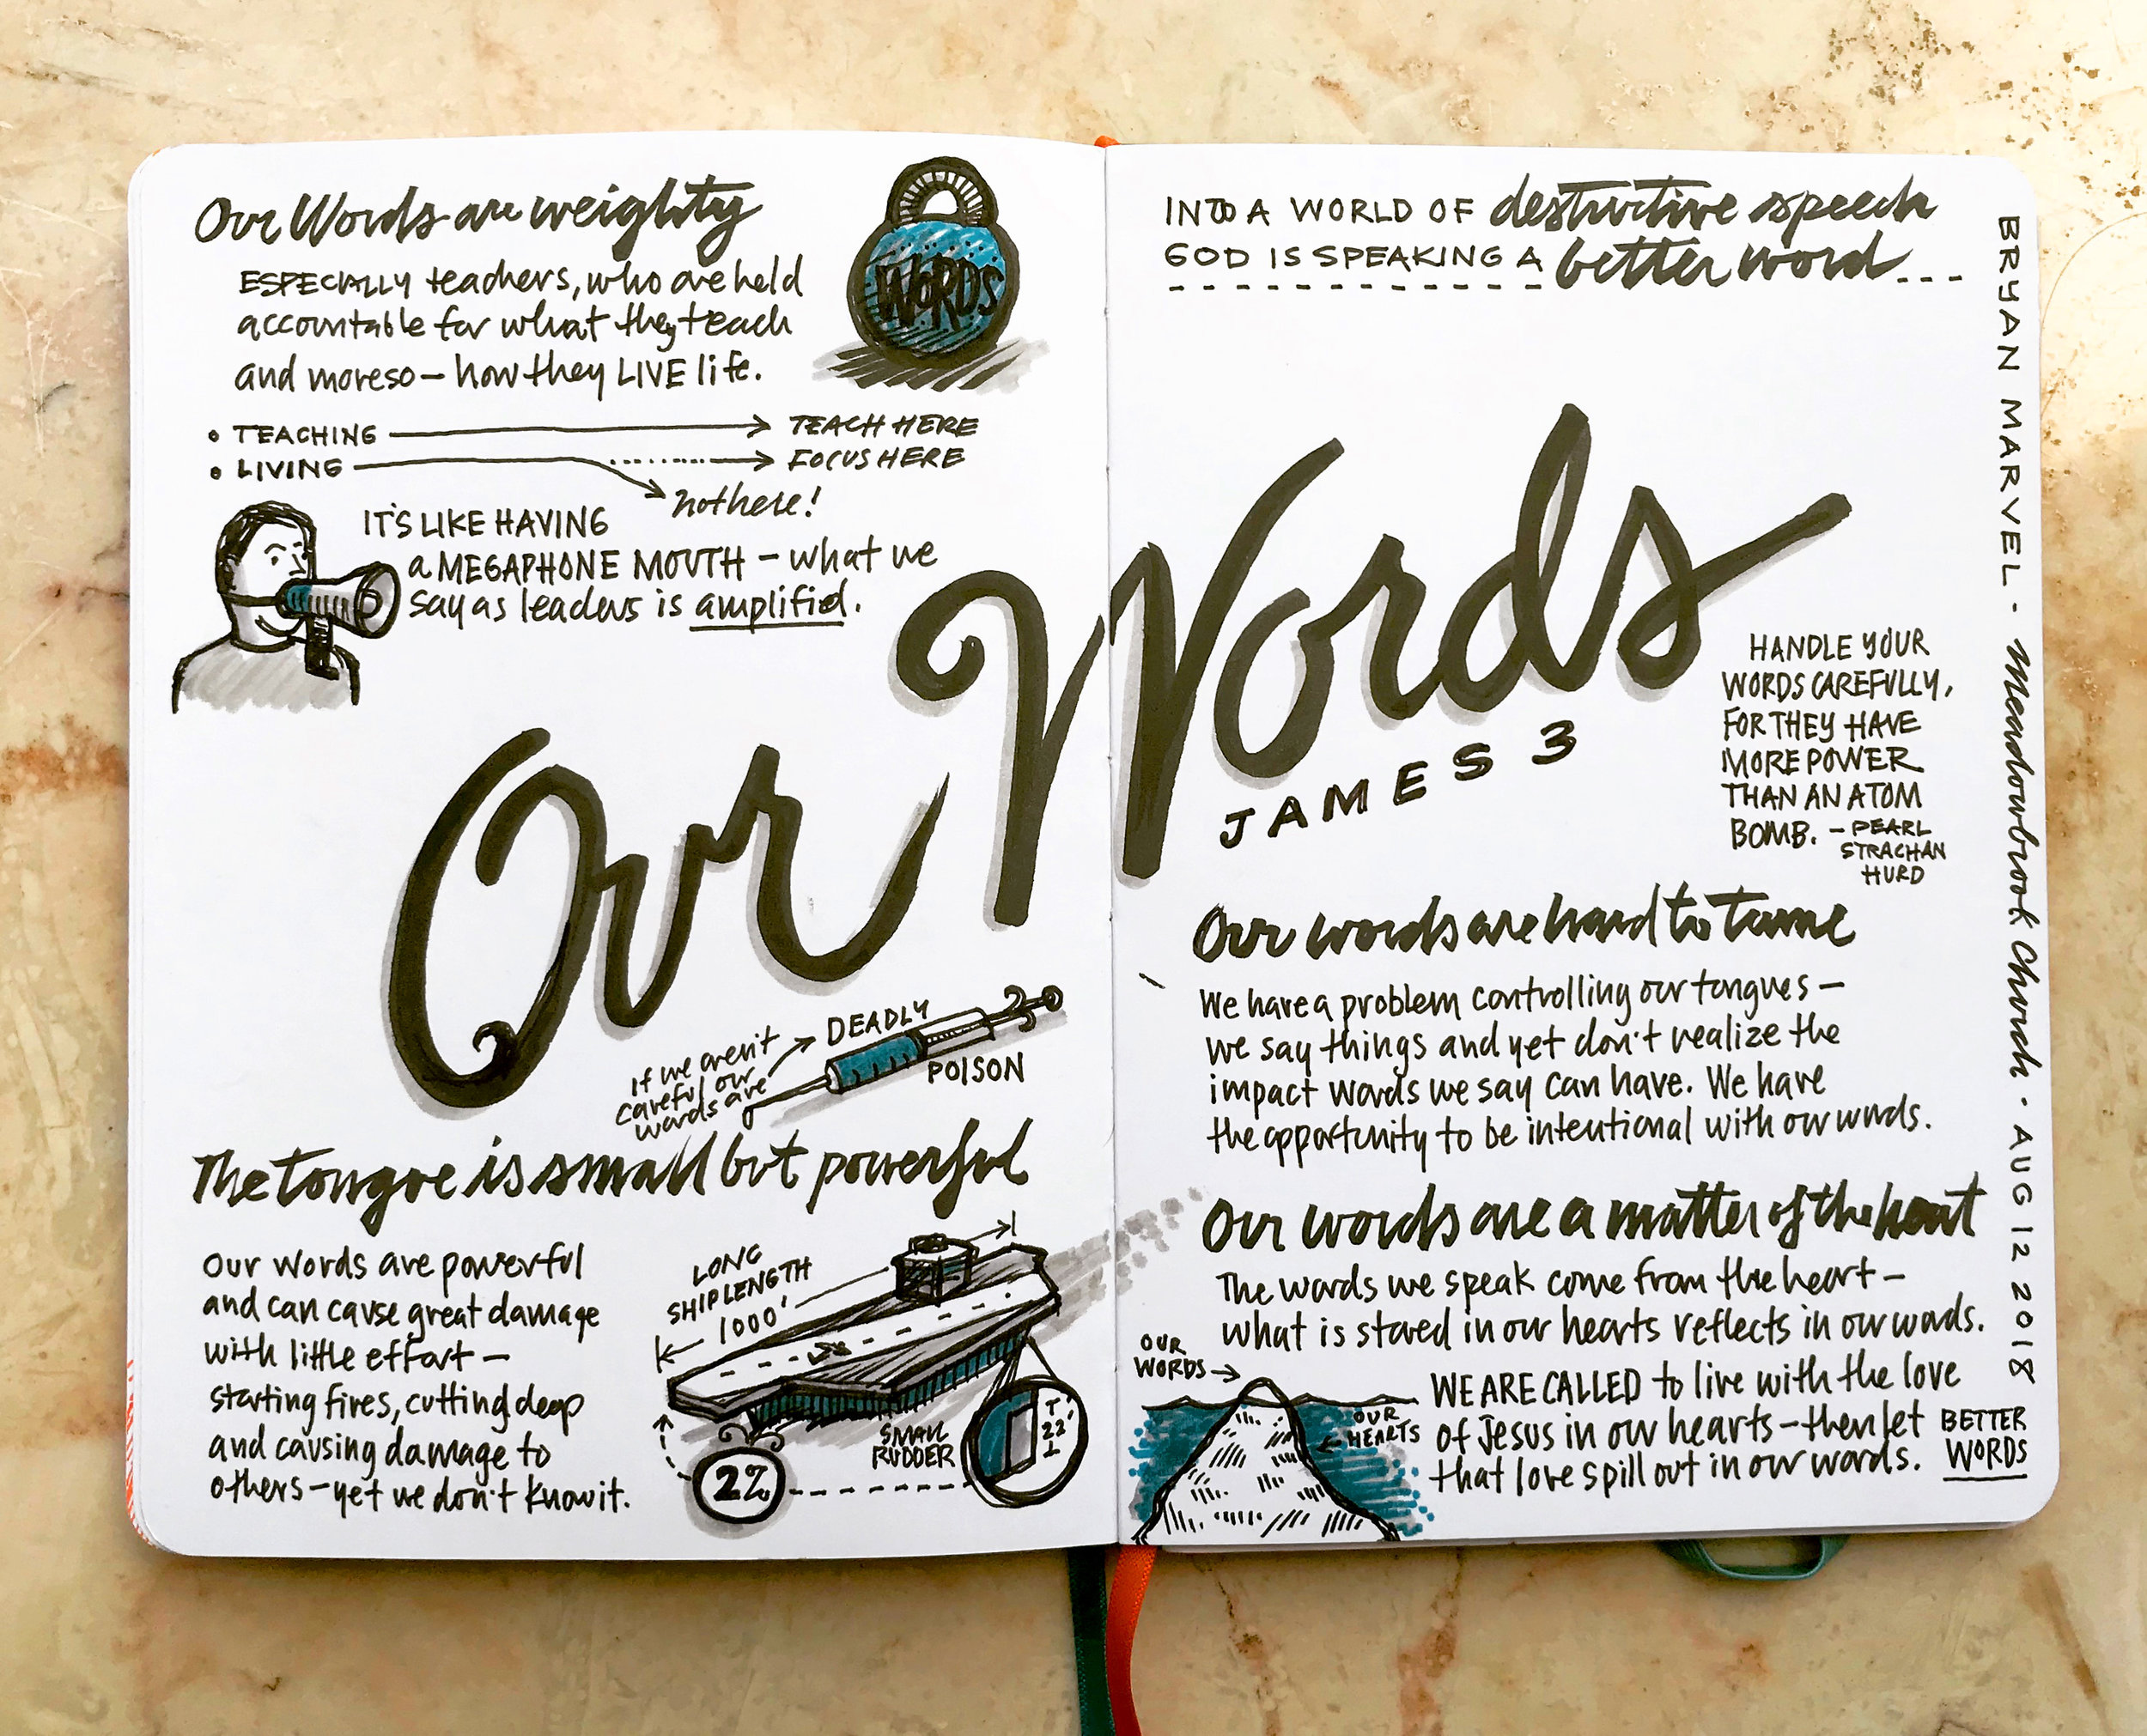 Our Words are weighty
ESPECIALLY teachers, who are held
accountable for what they teach
and moreso – how they LIVE life.
WORDS
• TEACHING → TEACH HERE
• LIVING → FOCUS HERE
not here!
IT'S LIKE HAVING
a MEGAPHONE MOUTH – what we
say as leaders is amplified.
Our Words
JAMES 3
If we aren't
careful our
words are
DEADLY
POISON
The tongue is small but powerful
Our words are powerful
and can cause great damage
with little effort –
starting fires, cutting deep
and causing damage to
others – yet we don't know it.
LONG
SHIP LENGTH
1000'
SMALL
RUDDER
22'
2%
INTO A WORLD OF destructive speech
GOD IS SPEAKING A better word...
HANDLE YOUR
WORDS CAREFULLY,
FOR THEY HAVE
MORE POWER
THAN AN ATOM
BOMB. – PEARL
STRACHAN
HURD
Our words are hard to tame
We have a problem controlling our tongues –
we say things and yet don't realize the
impact words we say can have. We have
the opportunity to be intentional with our words.
Our words are a matter of the heart
The words we speak come from the heart –
what is stored in our hearts reflects in our words.
OUR
WORDS →
← OUR
HEARTS
WE ARE CALLED to live with the love
of Jesus in our hearts – then let
that love spill out in our words.
BETTER
WORDS
BRYAN MARVEL · Meadowbrook Church · AUG 12 2018